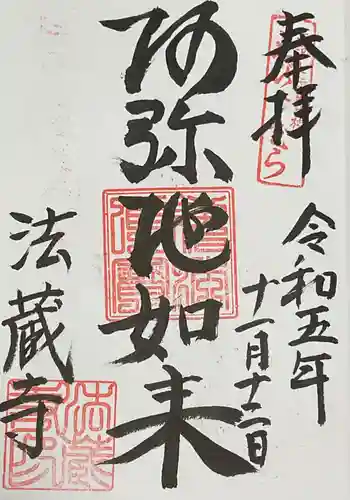 奉拝
令和五年
十一月十二日
阿弥地如来
法蔵寺